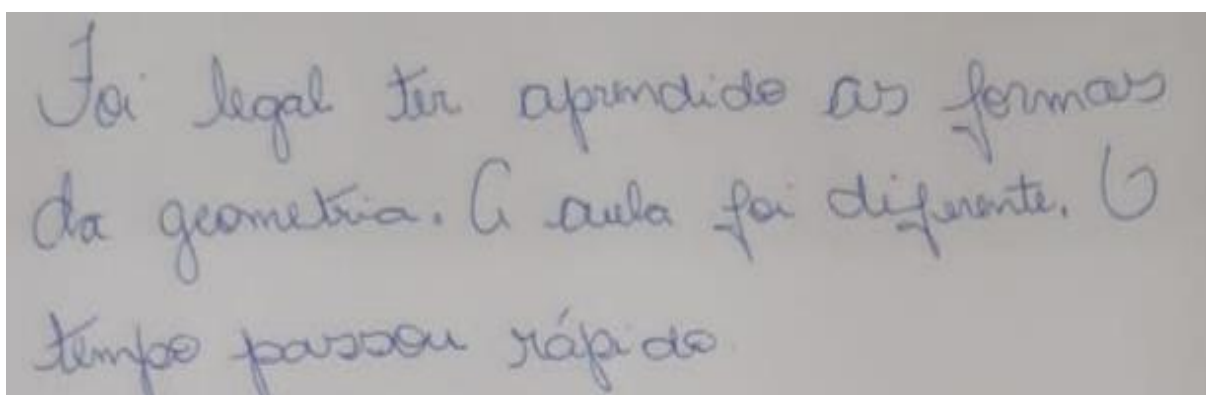 Foi legal ter aprendido as formas
da geometria. A aula foi diferente. O
tempo passou rápido